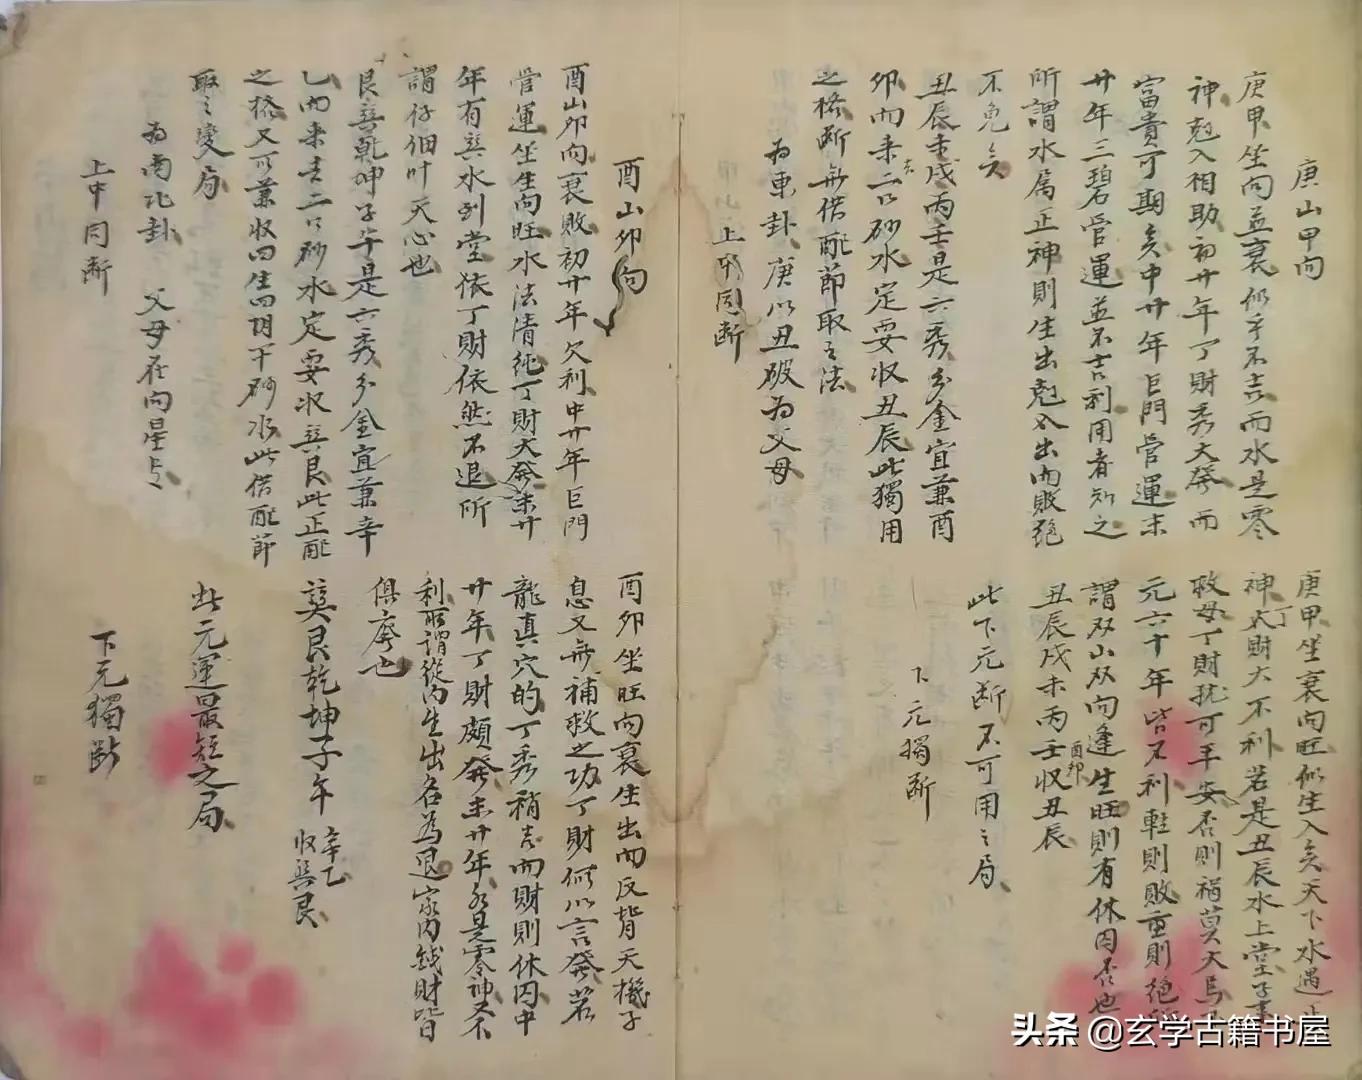 庚山甲向
庚甲坐向並衰似乎不吉而水是零
神尅入相助初廿年丁財秀大發而
富貴可期矣中廿年巨門管運末
廿年三碧管運並不吉利用者知之
所謂水屬正神則生出尅出而敗絕
不免矣
丑辰未戌丙壬是六秀分金宜兼酉
卯而来去二口砂水定要収丑辰此獨用
之格断無借配節取之法
為東卦庚以丑破為父母
甲山上中同断
庚甲坐衰向旺似生入矣天下水遇
神丁財大不利若是丑辰水上堂子
救母丁財犹可平安否則禍莫大焉
元六十年皆不利軽則敗重則絕
謂双山双向逢生旺則有休囚否也
丑辰戌未丙壬酉卯収丑辰
此下元断不可用之局
下元獨断
酉山卯向
酉山卯向衰敗初廿年欠利中廿年巨門
管運坐生向旺水法清純丁財大發末廿
年有巽水到堂依丁財依然不退所
謂仔細叶天心也
艮巽乾坤子午是六秀分金宜兼辛
乙而来去二口砂水定要収巽艮此正配
之格又可兼收四生四陽干砂水此借配節
取之变局
為南北卦 父母在向星上
上中同断
酉卯坐旺向衰生出而反背天機子
息又無補救之功丁財何以言發若
龍真穴的丁秀稍吉而財則休囚中
廿年丁財頗發末廿年水是零神又不
利所謂從内生出名為退家内錢財皆
俱廢也
巽艮乾坤子午 辛乙收巽艮
此元運最短之局
下元獨断
头条 @玄学古籍书屋